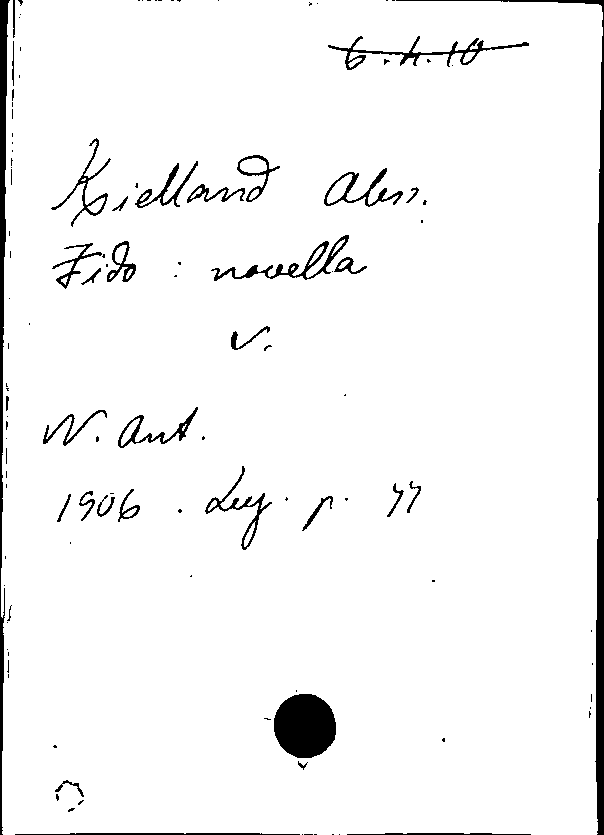 6.4.10
Kielland Aless.
Fido : novella
v.
N. Ant.
1906 . Lug. p. 77